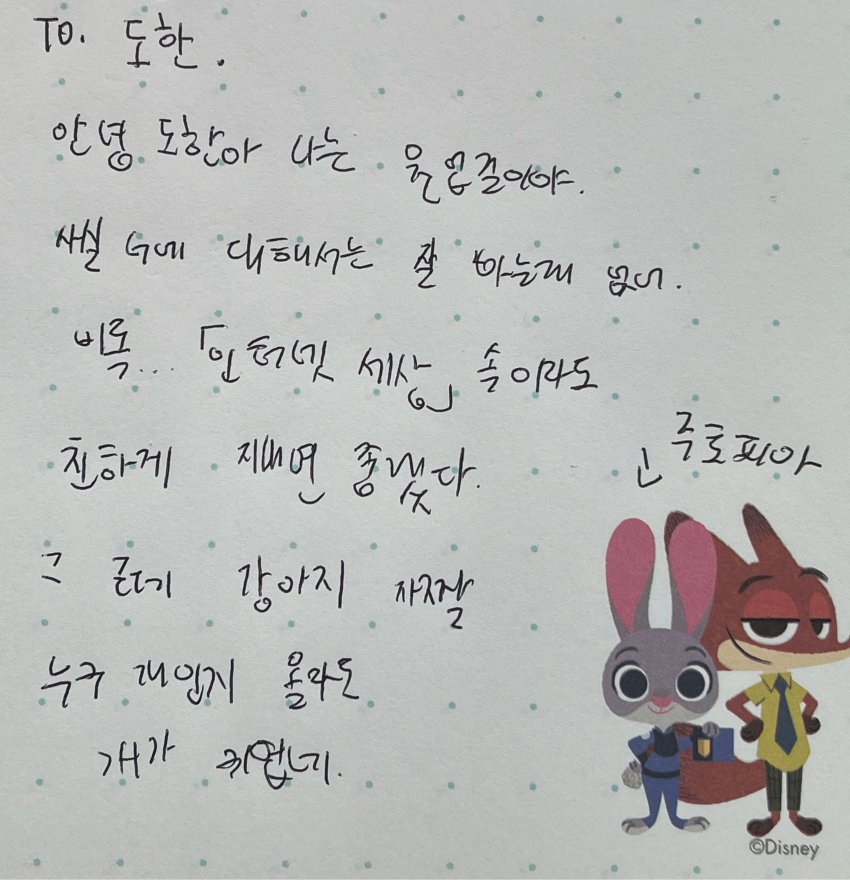 TO. 도한.
안녕 도한아 나는 윤업걸이야.
썰 너에 대해서는 잘 아는개 없어.
비록... 「인터넷 세상」 속이라도
친하게 지내면 좋겠다.
ㄴ주토피아
그 른데 강아지 사진잘
누구 개인지 몰라도
개가 귀엽네.
©Disney